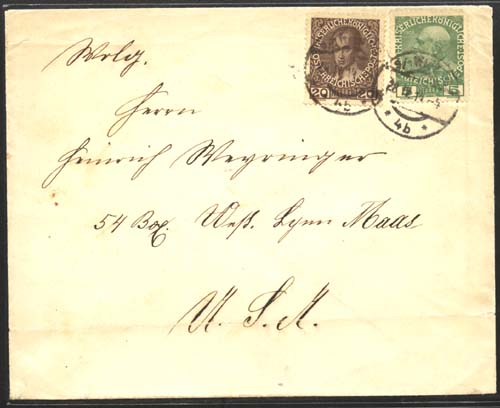 Wolg.
Herrn
Heinrich Weyringer
54 Box. Weß. Lynn Maas
U. S. A.
KAISERLICHE KÖNIGLICHE
ÖSTERREICHISCHE POST
20 20
KAISERLICHE KÖNIGLICHE
ÖSTERREICHISCHE POST
5
4b
* 4b *